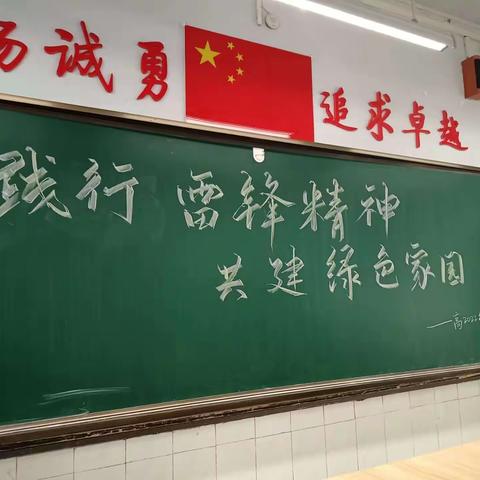 诚勇 追求卓越
践行 雷锋精神
共建绿色家园
——高2022